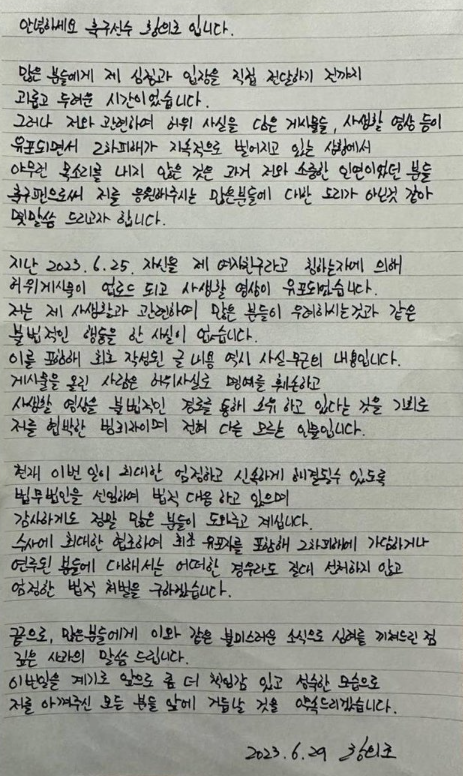 안녕하세요 축구선수 황의조 입니다.
많은 분들에게 제 심정과 입장을 직접 전달하기 전까지
괴롭고 두려운 시간이었습니다.
그러나 저와 관련하여 허위 사실을 담은 게시물들, 사생활 영상 등이
유포되면서 2차피해가 지속적으로 벌어지고 있는 상황에서
아무런 목소리를 내지 않은 것은 과거 저와 소중한 인연이었던 분들
축구팬으로써 저를 응원해주시는 많은분들에 대한 도리가 아닌것 같아
몇말씀 드리고자 합니다.
지난 2023.6.25. 자신을 제 여자친구라고 칭하는자에 의해
허위게시물이 업로드 되고 사생활 영상이 유포되었습니다.
저는 제 사생활과 관련하여 많은 분들이 우려하시는것과 같은
불법적인 행동을 한 사실이 없습니다.
이를 포함해 최초 작성된 글 내용 역시 사실무근의 내용입니다.
게시물을 올린 사람은 허위사실로 명예를 훼손하고
사생활 영상을 불법적인 경로를 통해 소유 하고 있다는 것을 기회로
저를 협박한 범죄자이며 전혀 다를 모르는 인물입니다.
현재 이번 일이 최대한 엄정하고 신속하게 해결될수 있도록
법무법인을 선임하여 법적 대응 하고 있으며
감사하게도 정말 많은 분들이 도와주고 계십니다.
수사에 최대한 협조하여 최초 유포자를 포함해 2차피해에 가담하거나
연루된 분들에 대해서는 어떠한 경우라도 절대 선처하지 않고
엄정한 법적 처벌을 구하겠습니다.
끝으로, 많은분들에게 이와 같은 불미스러운 소식으로 심려를 끼쳐드린 점
깊은 사과의 말씀 드립니다.
이번일을 계기로 앞으로 좀 더 책임감 있고 성숙한 모습으로
저를 아껴주신 모든 분들 앞에 거듭날 것을 약속드리겠습니다.
2023.6.29 황의조